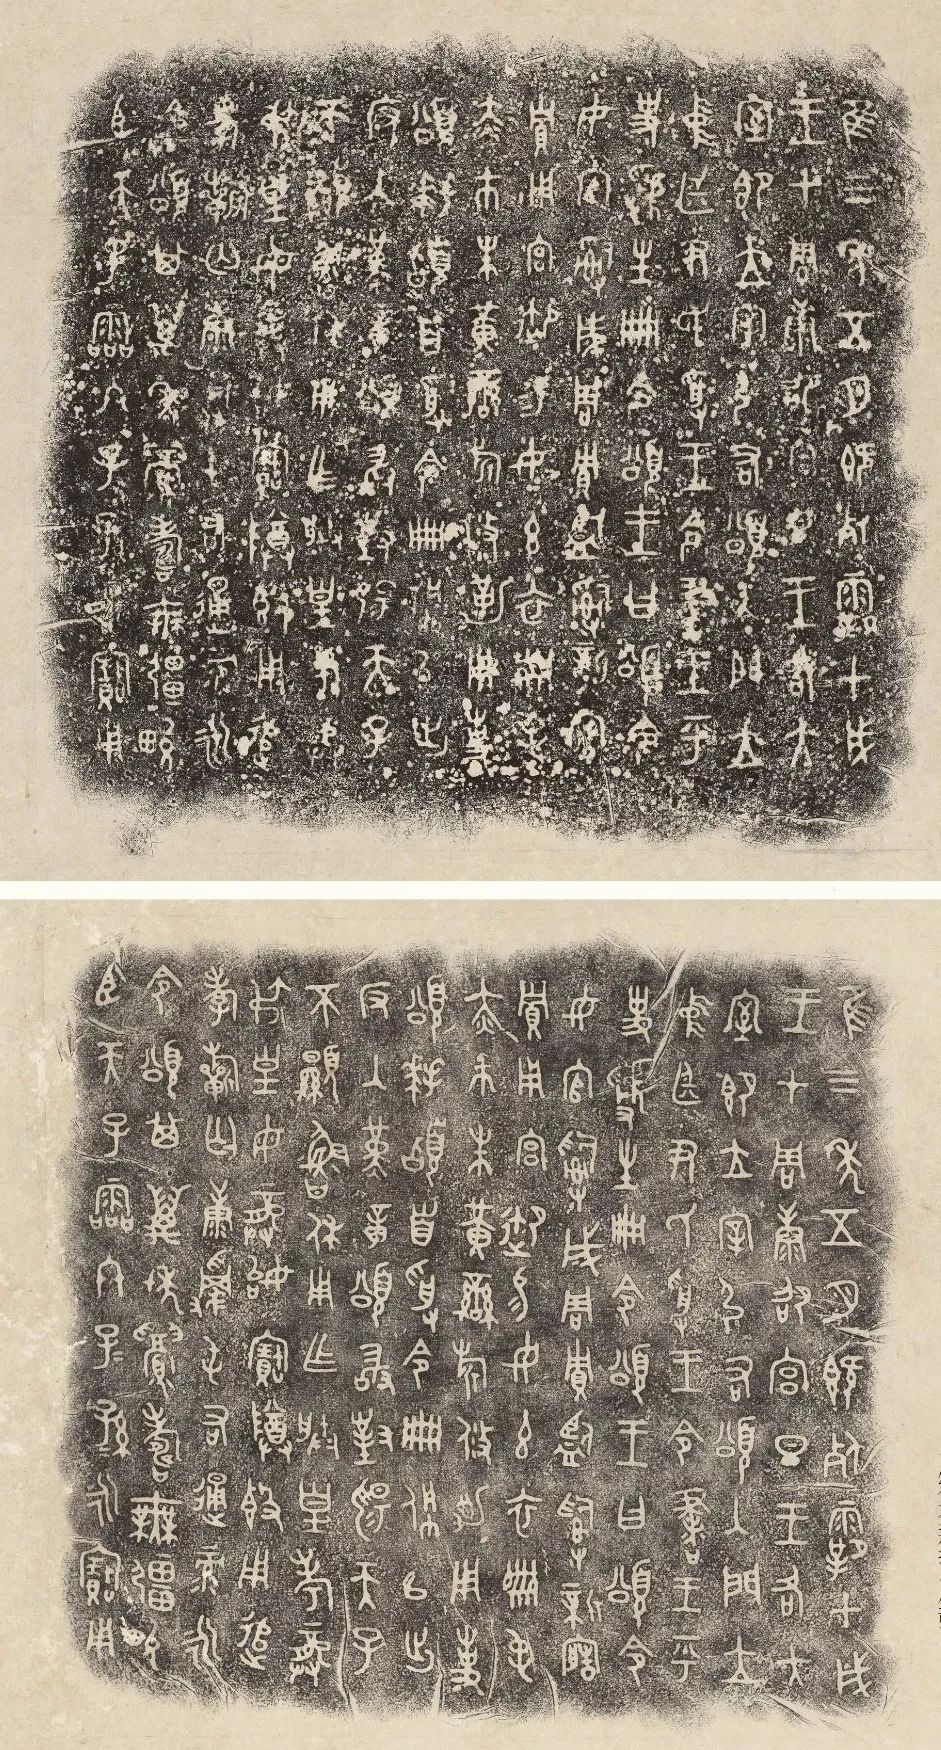 隹三年五月既死霸甲戌
王才周康卲宮旦王各大
室即立宰引右頌入門立
中廷尹氏受王令書王乎
史虢生冊令頌王曰頌令
女官𤔲成周貯監𤔲新寤
貯用宮御易女玄衣黹屯
赤巿朱黃䜌旂攸勒用事
頌拜𩒨首受令冊佩以出
反入堇章頌敢對揚天子
不顯魯休用乍朕皇考龏
弔皇母龏姒寶尊𣪘用追
孝𣄨匄康𩁹屯右通彔永
令頌其萬年眉壽無疆畯
臣天子霝冬子孫永寶用
隹三年五月既死霸甲戌
王才周康卲宮旦王各大
室即立宰引右頌入門立
中廷尹氏受王令書王乎
史虢生冊令頌王曰頌令
女官𤔲成周貯監𤔲新寤
貯用宮御易女玄衣黹屯
赤巿朱黃䜌旂攸勒用事
頌拜𩒨首受令冊佩以出
反入堇章頌敢對揚天子
不顯魯休用乍朕皇考龏
弔皇母龏姒寶尊𣪘用追
孝𣄨匄康𩁹屯右通彔永
令頌其萬年眉壽無疆畯
臣天子霝冬子孫永寶用